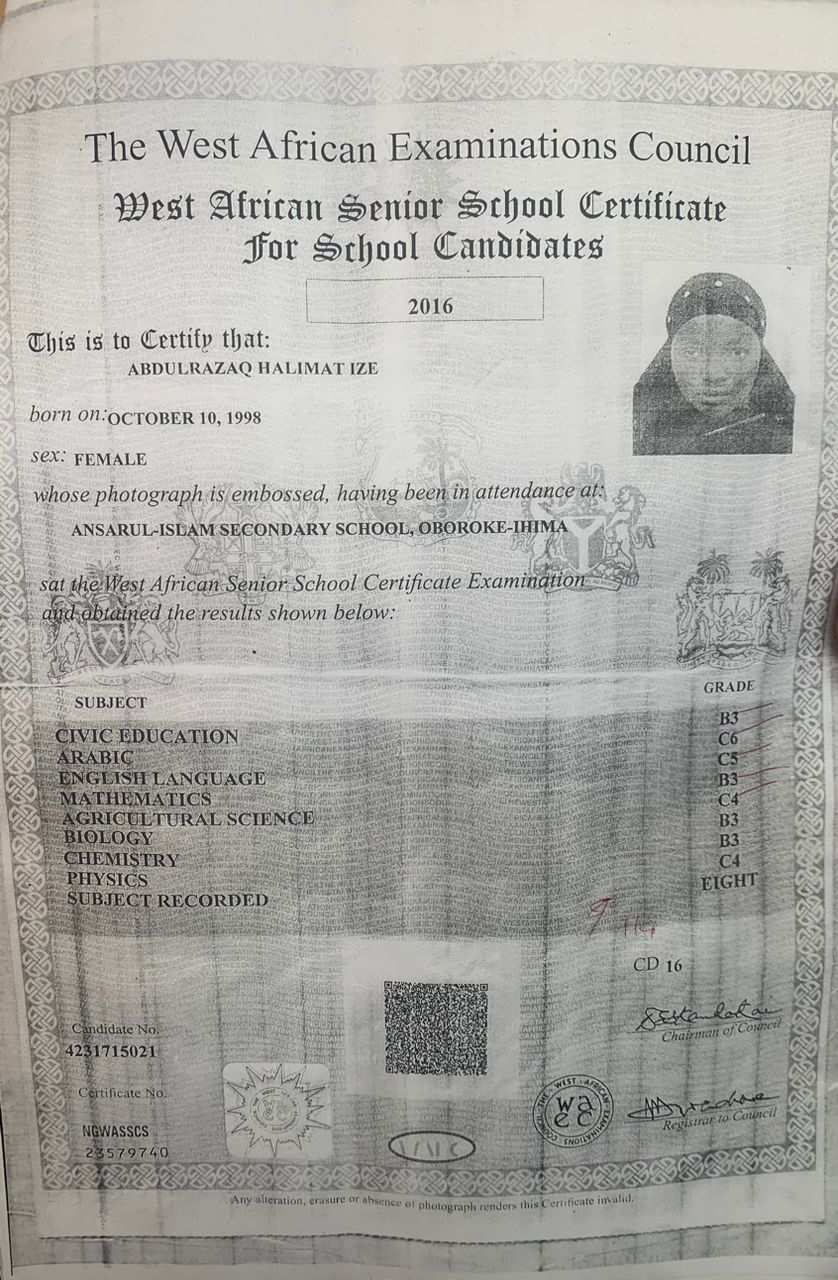 The West African Examinations Council
West African Senior School Certificate
For School Candidates
2016
This is to Certify that:
ABDULRAZAQ HALIMAT IZE
born on: OCTOBER 10, 1998
sex: FEMALE
whose photograph is embossed, having been in attendance at:
ANSARUL-ISLAM SECONDARY SCHOOL, OBOROKE-IHIMA
sat the West African Senior School Certificate Examination
and obtained the results shown below:
SUBJECT GRADE
CIVIC EDUCATION B3
ARABIC C6
ENGLISH LANGUAGE C5
MATHEMATICS B3
AGRICULTURAL SCIENCE C4
BIOLOGY B3
CHEMISTRY B3
PHYSICS C4
SUBJECT RECORDED EIGHT
CD 16
Chairman of Council
Candidate No.
4231715021
Certificate No.
NGWASSCS
23579740
THE WEST AFRICAN EXAMINATIONS COUNCIL
waec
Registrar to Council
Any alteration, erasure or absence of photograph renders this Certificate invalid.